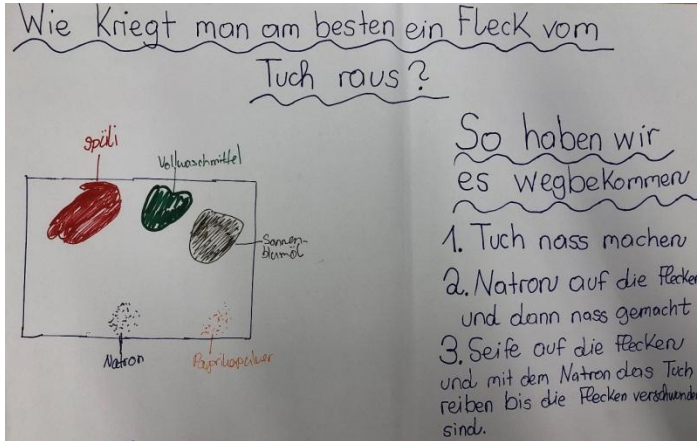 Wie Kriegt man am besten ein Fleck vom
Tuch raus?
spüli
Vollwaschmittel
Sonnen-
blumöl
Natron
Paprikapulver
So haben wir
es wegbekommen
1. Tuch nass machen
2. Natron auf die Flecken
und dann nass gemacht
3. Seife auf die Flecken
und mit dem Natron das Tuch
reiben bis die Flecken verschwunden
sind.